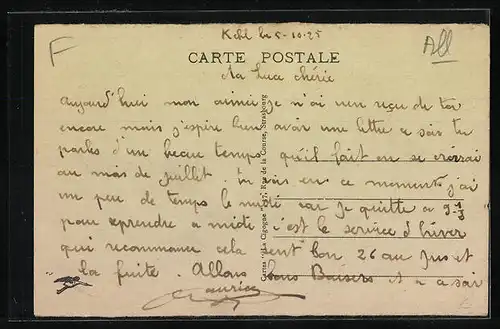 F
Kehl le 5-10-25
All
CARTE POSTALE
Ma Luce chérie
aujourd'hui mon aimée je n'ai rien reçu de toi
encore mais j'espère bien avoir une lettre ce soir tu
parles d'un beau temps qu'il fait on se croirai
au mois de juillet. tu vois en ce moment j'ai
un peu de temps le matin car je quitte a 9
pour reprendre a midi c'est le service d'hiver
qui recommance cela sent bon 26 au Jus et
la fuite. Allons bons Baisers et a ce soir
Maurice
Cartes "La Cigogne", 37, Rue de la Course, Strasbourg